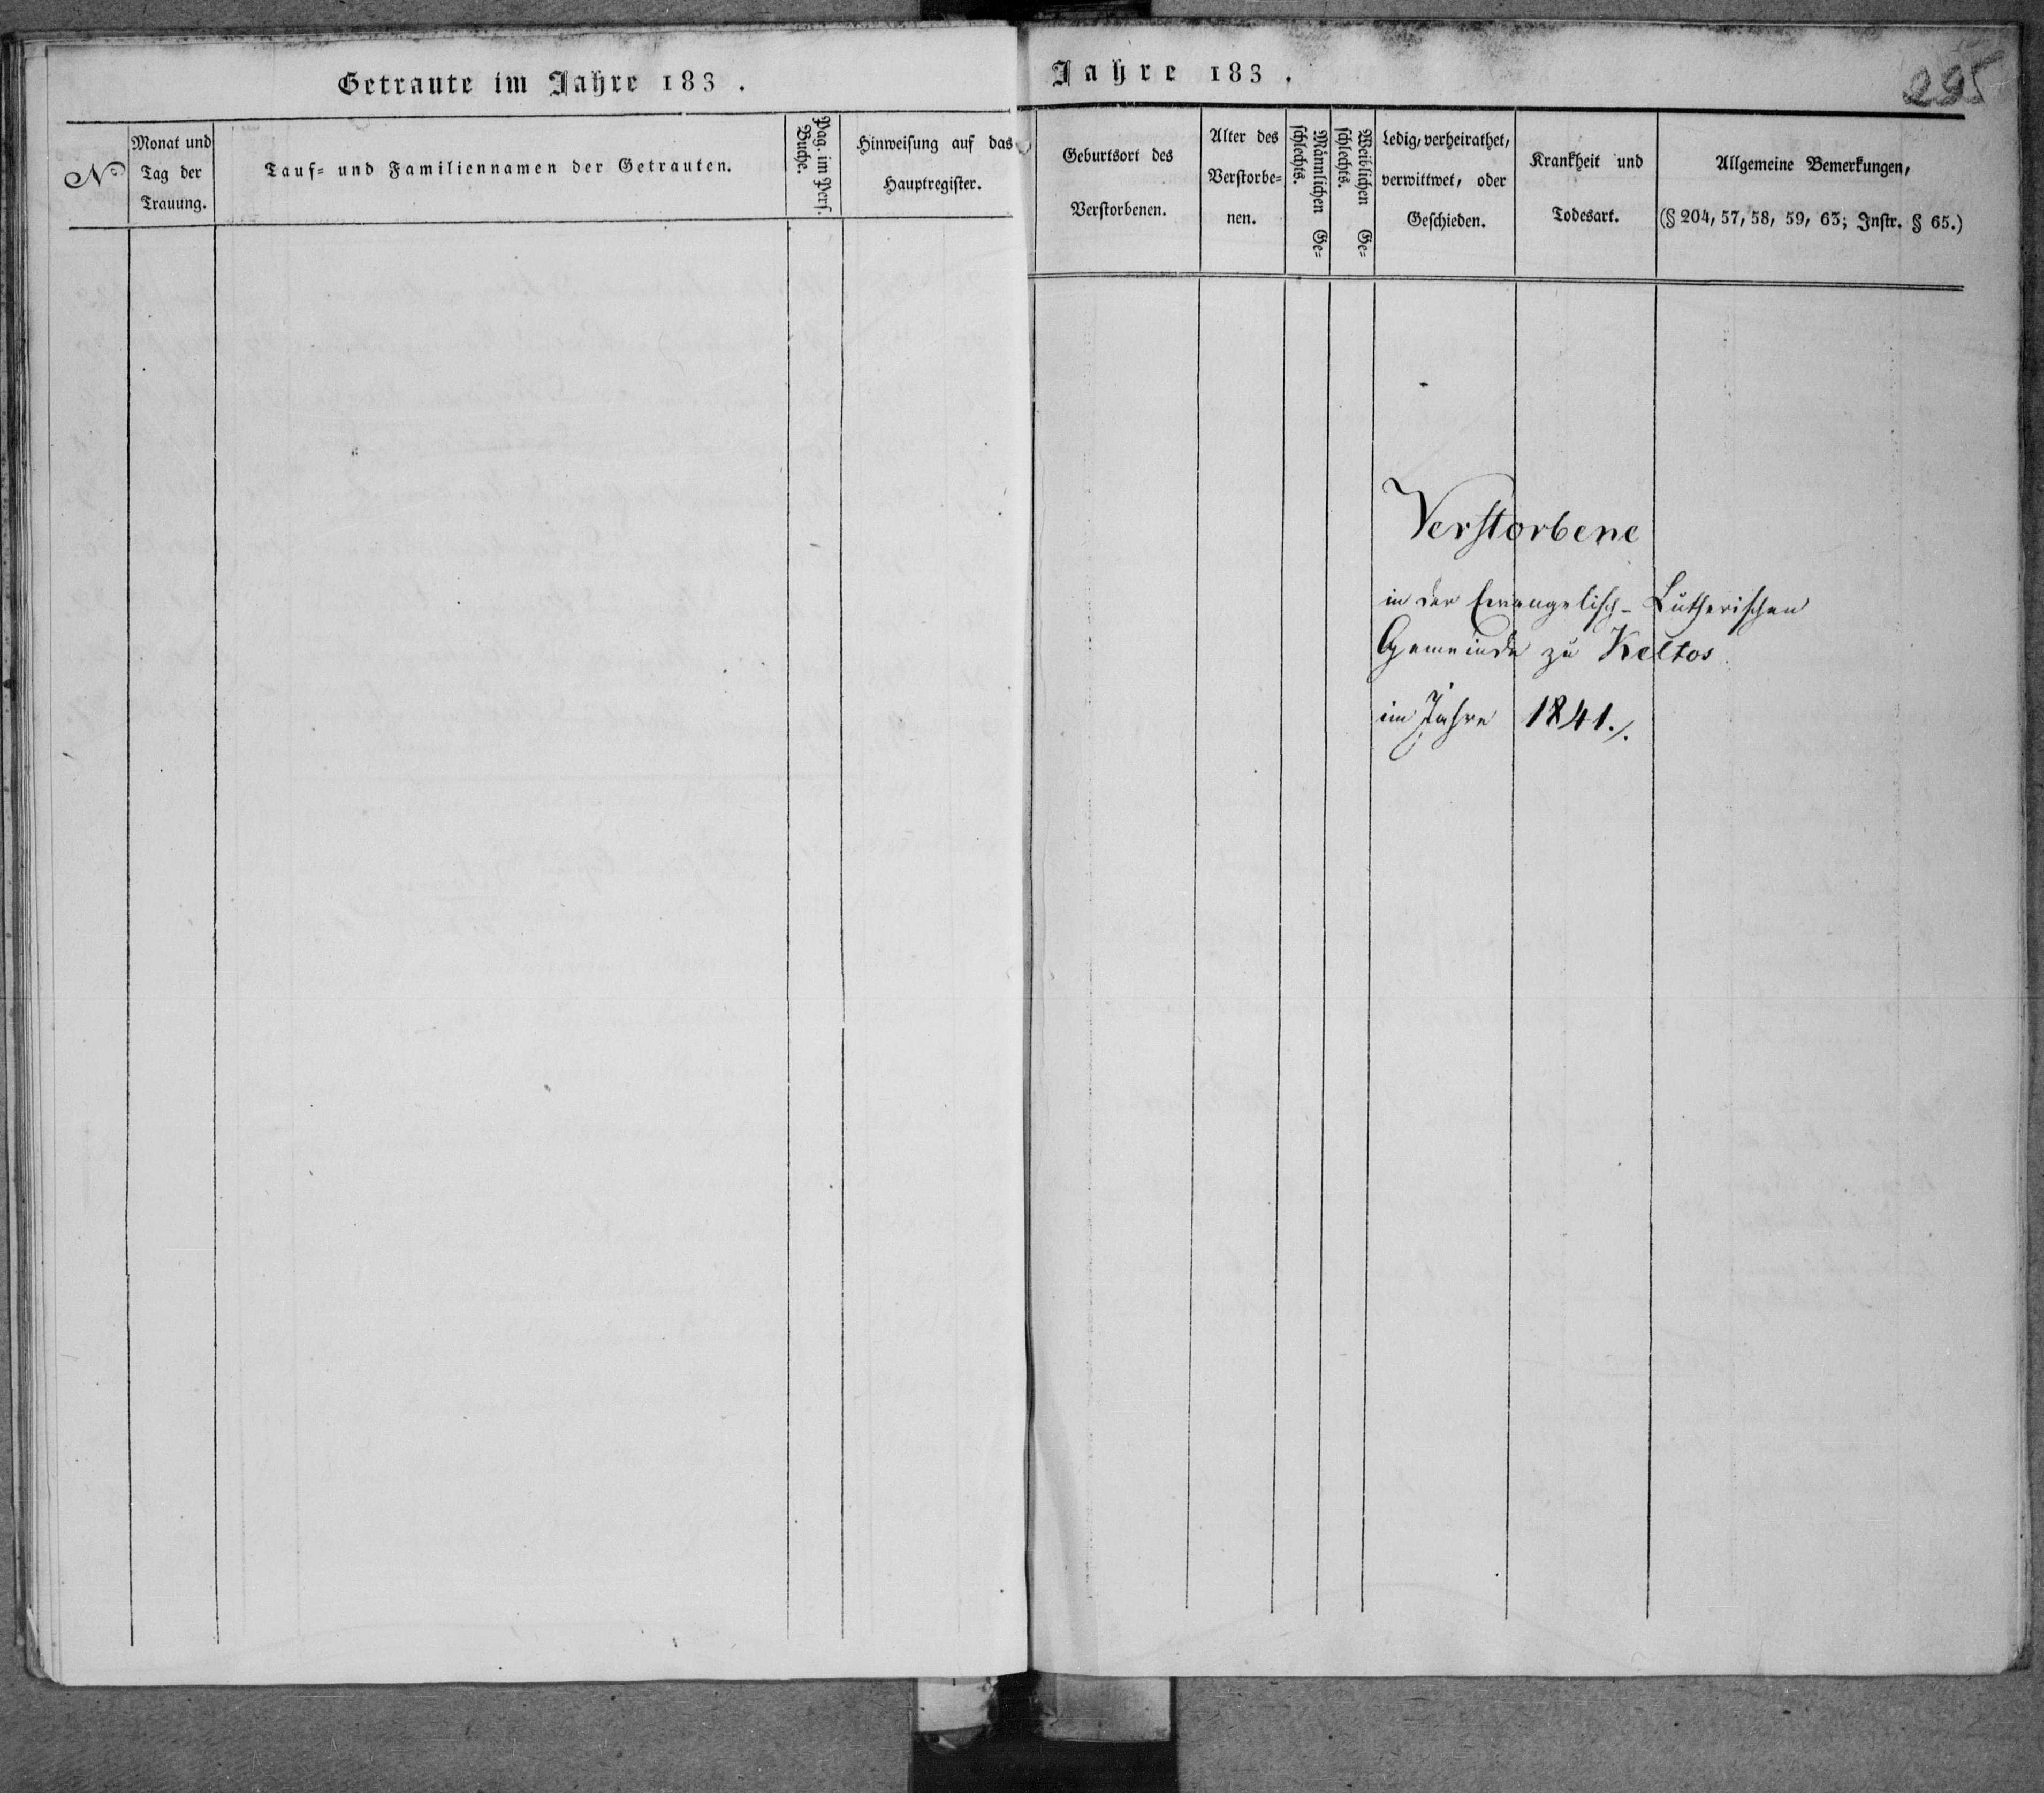 Getraute im Jahre 183 .
№
Monat und
Tag der
Trauung.
Tauf- und Familiennamen der Getrauten.
Pag. im Pers.
Buche.
Hinweisung auf das
Hauptregister.
Jahre 183 .
295
Geburtsort des
Verstorbenen.
Alter des
Verstorbe-
nen.
Männlichen Ge-
schlechts.
Weiblichen Ge-
schlechts.
Ledig, verheirathet,
verwittwet, oder
Geschieden.
Krankheit und
Todesart.
Allgemeine Bemerkungen,
(§ 204, 57, 58, 59, 63; Instr. § 65.)
Verstorbene
in der Evangelisch-Lutherischen
Gemeinde zu Keltos
im Jahre 1841./.